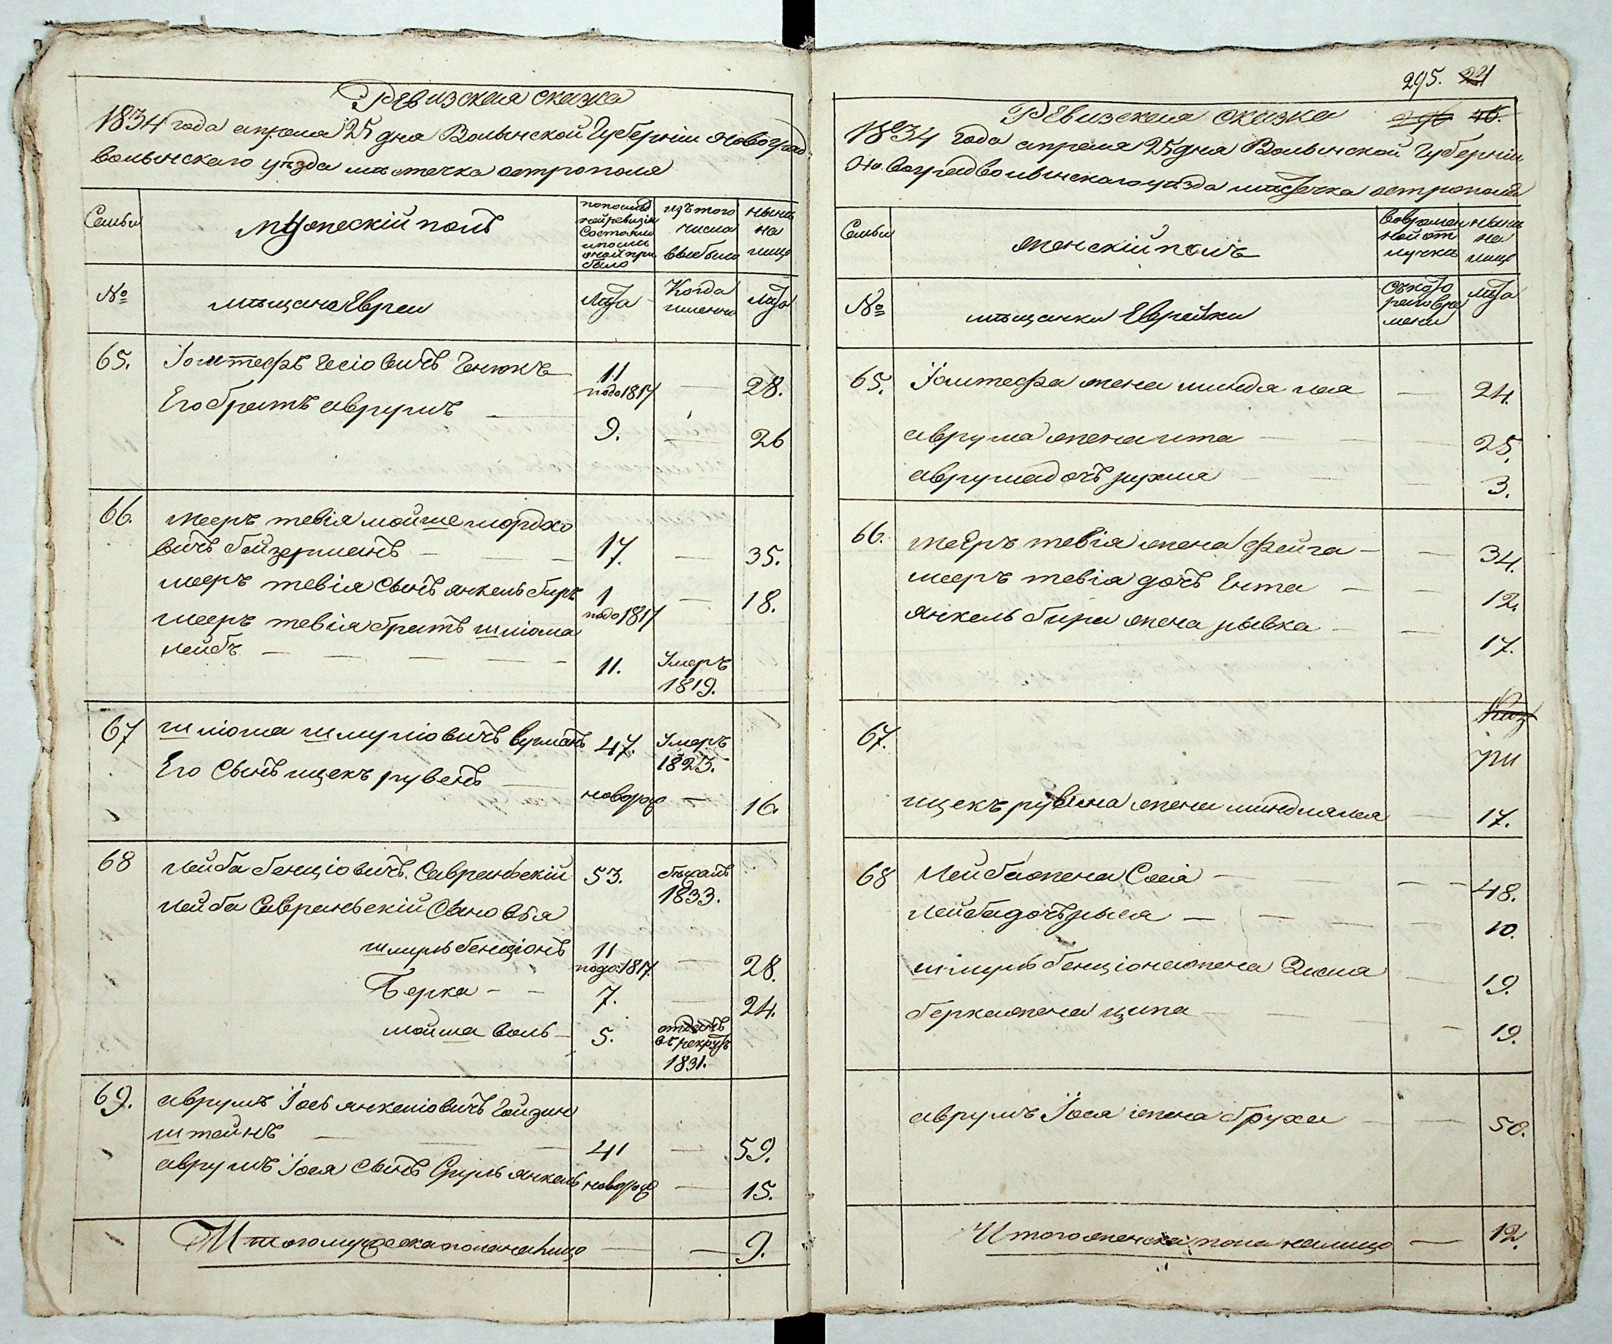 Ревизская сказка
1834 года апреля 25 дня Волынской Губернiи Новоград
волынского уѣзда мѣстечка острополя
Семьи
мужескiй полъ
по послѣд
ней ревизiи
состояло
и послѣ
оной при
было
изъ того
числа
выбыло
нынѣ
на
лицо
№
мѣщане Евреи
Лѣта
Когда
именно
лѣта
65.
11
подо 1817
—
28.
Его братъ аврумъ
9.
—
26
66.
мееръ тевiя мойше мордко
вичъ
17.
—
35.
мееръ тевiя сынъ янкель биръ
1
подо 1817
—
18.
мееръ тевiя братъ шлiома
лейбъ
11.
Умеръ
1819.
67
шлiома шмулiовичъ
47.
Умеръ
1825.
Его сынъ ицекъ рувенъ
новорож
—
16.
68
лейба бенцiовичъ Савранскiй
53.
бѣжалъ
1833.
лейба Савраньскiй сыновья
шмуль бенцiонъ
11
подо 1817
—
28.
Берка
7.
—
24.
мойша воль
5.
отданъ
въ рекрут
1831.
69.
аврумъ Iось янкелiовичъ Гойзен
штейнъ
41
—
59.
аврумъ Iося сынъ Сруль янкель
новорож
—
15.
Итого мужеска пола налицо
—
9.
295.
Ревизская сказка
1834 года апреля 25 дня Волынской Губернiи
Новоградволынского уѣзда мѣстечка острополя
Семьи
женскiй полъ
во времен
ной от
лучкѣ
нынѣ
на
лицо
№
мѣщанки Еврейки
съ кото
раго вре
мени
лѣта
65.
—
24.
аврума жена ита
25.
аврума дочь рухля
3.
66.
мееръ тевiя жена фейга
34.
мееръ тевiя дочь Ента
12.
янкель бира жена рывка
17.
67.
ицекъ рувина жена миндля
17.
68
лейба жена Сося
48.
лейба дочь рыся
10.
шмуль бенцiона жена Элька
19.
берка жена ципа
19.
аврумъ Iося жена бруха
50.
Итого женска пола налицо
—
12.